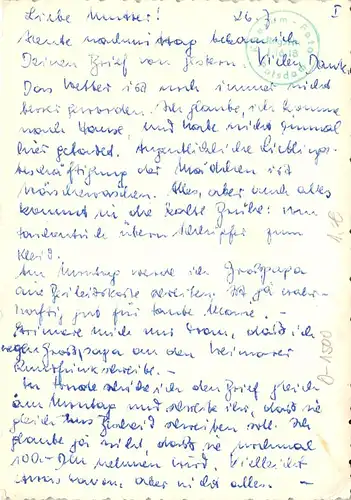 Liebe Mutter! 26. 7. I
Heute nachmittag bekam ich
Deinen Brief von gestern. Vielen Dank.
Das Wetter ist noch immer nicht
besser geworden. Ich glaube, ich komme
nach Hause, und habe nicht einmal
hier gebadet. Augentliche Lieblings-
beschäftigung der Mädchen ist
Wäschewaschen. Alles, aber auch alles
kommt in die kalte Brühe: vom
Taschentuch übern Schlüpfer zum
Kleid.
Am Montag werde ich Großpapa
eine schreiben. Ist ja wahr-
haftig gut für
Erinnere mich nur dran, daß ich
wegen Großpapa an den Weimarer
schreibe. -
In schicke ich den Brief gleich
am Montag und schreibe ihr, daß sie
gleich ins schreiben soll. Ich
glaube ja nicht, daß sie nochmal
100.- DM nehmen wird. Vielleicht
etwas davon, aber nicht allen -
0-1500